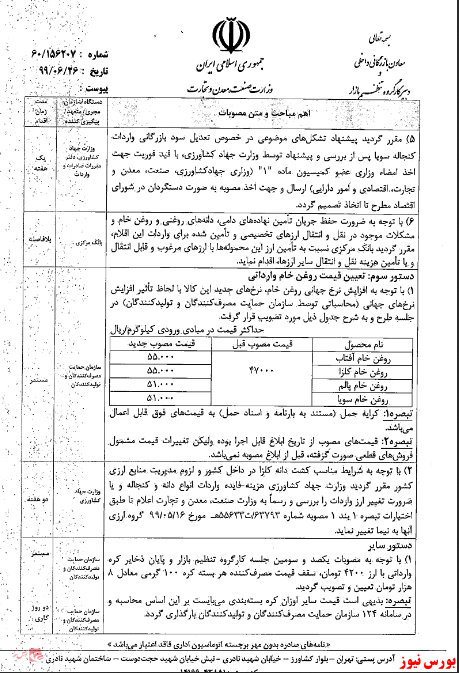 بسمه تعالی
معاون بازرگانی داخلی
و
دبیر کارگروه تنظیم بازار
جمهوری اسلامی ایران
وزارت صنعت، معدن و تجارت
شماره : ۶۰/۱۵۶۲۰۷
تاریخ : ۹۹/۰۶/۲۶
پیوست :
اهم مباحث و متن مصوبات
دستگاه/سازمان
مجری/متعهد/
پیگیری کننده
مدت
زمان
اقدام
۵) مقرر گردید پیشنهاد تشکل‌های موضوعی در خصوص تعدیل سود بازرگانی واردات
کنجاله سویا پس از بررسی و پیشنهاد توسط وزارت جهاد کشاورزی، با قید فوریت جهت
اخذ امضاء وزاری عضو کمیسیون ماده "۱" (وزاری جهادکشاورزی، صنعت، معدن و
تجارت، اقتصادی و امور دارایی) ارسال و جهت اخذ مصوبه به صورت دستگردان در شورای
اقتصاد مطرح تا اتخاذ تصمیم گردد.
وزارت جهاد
کشاورزی، دفتر
مقررات صادرات و
واردات
یک
هفته
۶) با توجه به ضرورت حفظ جریان تأمین نهاده‌های دامی، دانه‌های روغنی و روغن خام و
مشکلات موجود در نقل و انتقال ارزهای تخصیصی و تأمین شده برای واردات این اقلام،
مقرر گردید بانک مرکزی نسبت به تأمین ارز این محموله‌ها با ارزهای مرغوب و قابل انتقال
و یا تأمین هزینه نقل و انتقال سایر ارزها، اقدام نماید.
بانک مرکزی
بلافاصله
دستور سوم: تعیین قیمت روغن خام وارداتی
۱) با توجه به افزایش نرخ جهانی روغن خام، نرخ‌های جدید این کالا با لحاظ تأثیر افزایش
نرخ‌های جهانی (محاسباتی توسط سازمان حمایت مصرف‌کنندگان و تولیدکنندگان) در
جلسه طرح و به شرح جدول ذیل مورد تصویب قرار گرفت.
حداکثر قیمت در مبادی ورودی کیلوگرم/ریال
نام محصول قیمت مصوب قبل قیمت مصوب جدید
روغن خام آفتاب ۴۷۰۰۰ ۵۵.۰۰۰
روغن خام کلزا ۵۵.۰۰۰
روغن خام پالم ۵۱.۰۰۰
روغن خام سویا ۵۱.۰۰۰
تبصره۱: کرایه حمل (مستند به بارنامه و اسناد حمل) به قیمت‌های فوق قابل اعمال
می‌باشد.
تبصره۲: قیمت‌های مصوب از تاریخ ابلاغ قابل اجرا بوده ولیکن تغییرات قیمت مشمول
فروش‌های قطعی صورت گرفته، قبل از ابلاغ مصوبه نمی‌باشد.
سازمان حمایت
مصرف‌کنندگان و
تولیدکنندگان
مستمر
۲) با توجه به شرایط مناسب کشت دانه کلزا در داخل کشور و لزوم مدیریت منابع ارزی
کشور مقرر گردید وزارت جهاد کشاورزی هزینه-فایده واردات انواع دانه و کنجاله و یا
ضرورت تغییر ارز واردات را بررسی و رسماً به وزارت صنعت، معدن و تجارت اعلام تا طبق
اختیارات تبصره ۱ بند ۱ مصوبه شماره ۶۳۷۹۳/ت۵۵۶۳۳هـ مورخ ۹۹/۰۵/۱۶ گروه ارزی
آنها به نیما تغییر نماید.
وزارت جهاد
کشاورزی
دو هفته
دستور سایر
۱) با توجه به مصوبات یکصد و سومین جلسه کارگروه تنظیم بازار و پایان ذخایر کره
وارداتی با ارز ۴۲۰۰ تومان، سقف قیمت مصرف‌کننده هر بسته کره ۱۰۰ گرمی معادل ۸
هزار تومان تعیین و تصویب گردید.
سازمان حمایت
مصرف‌کنندگان و
تولیدکنندگان
مستمر
تبصره: بدیهی است قیمت سایر اوزان کره بسته‌بندی می‌بایست بر این اساس محاسبه و
در سامانه ۱۲۴ سازمان حمایت مصرف‌کنندگان و تولیدکنندگان بارگذاری گردد.
سازمان حمایت
مصرف‌کنندگان و
تولیدکنندگان
دو روز
کاری
«نامه‌های صادره بدون مهر برجسته اتوماسیون اداری فاقد اعتبار می‌باشد»
آدرس پستی: تهران – بلوار کشاورز – خیابان شهید نادری – نبش خیابان شهید حجت‌دوست – ساختمان شهید نادری
بورس نیوز